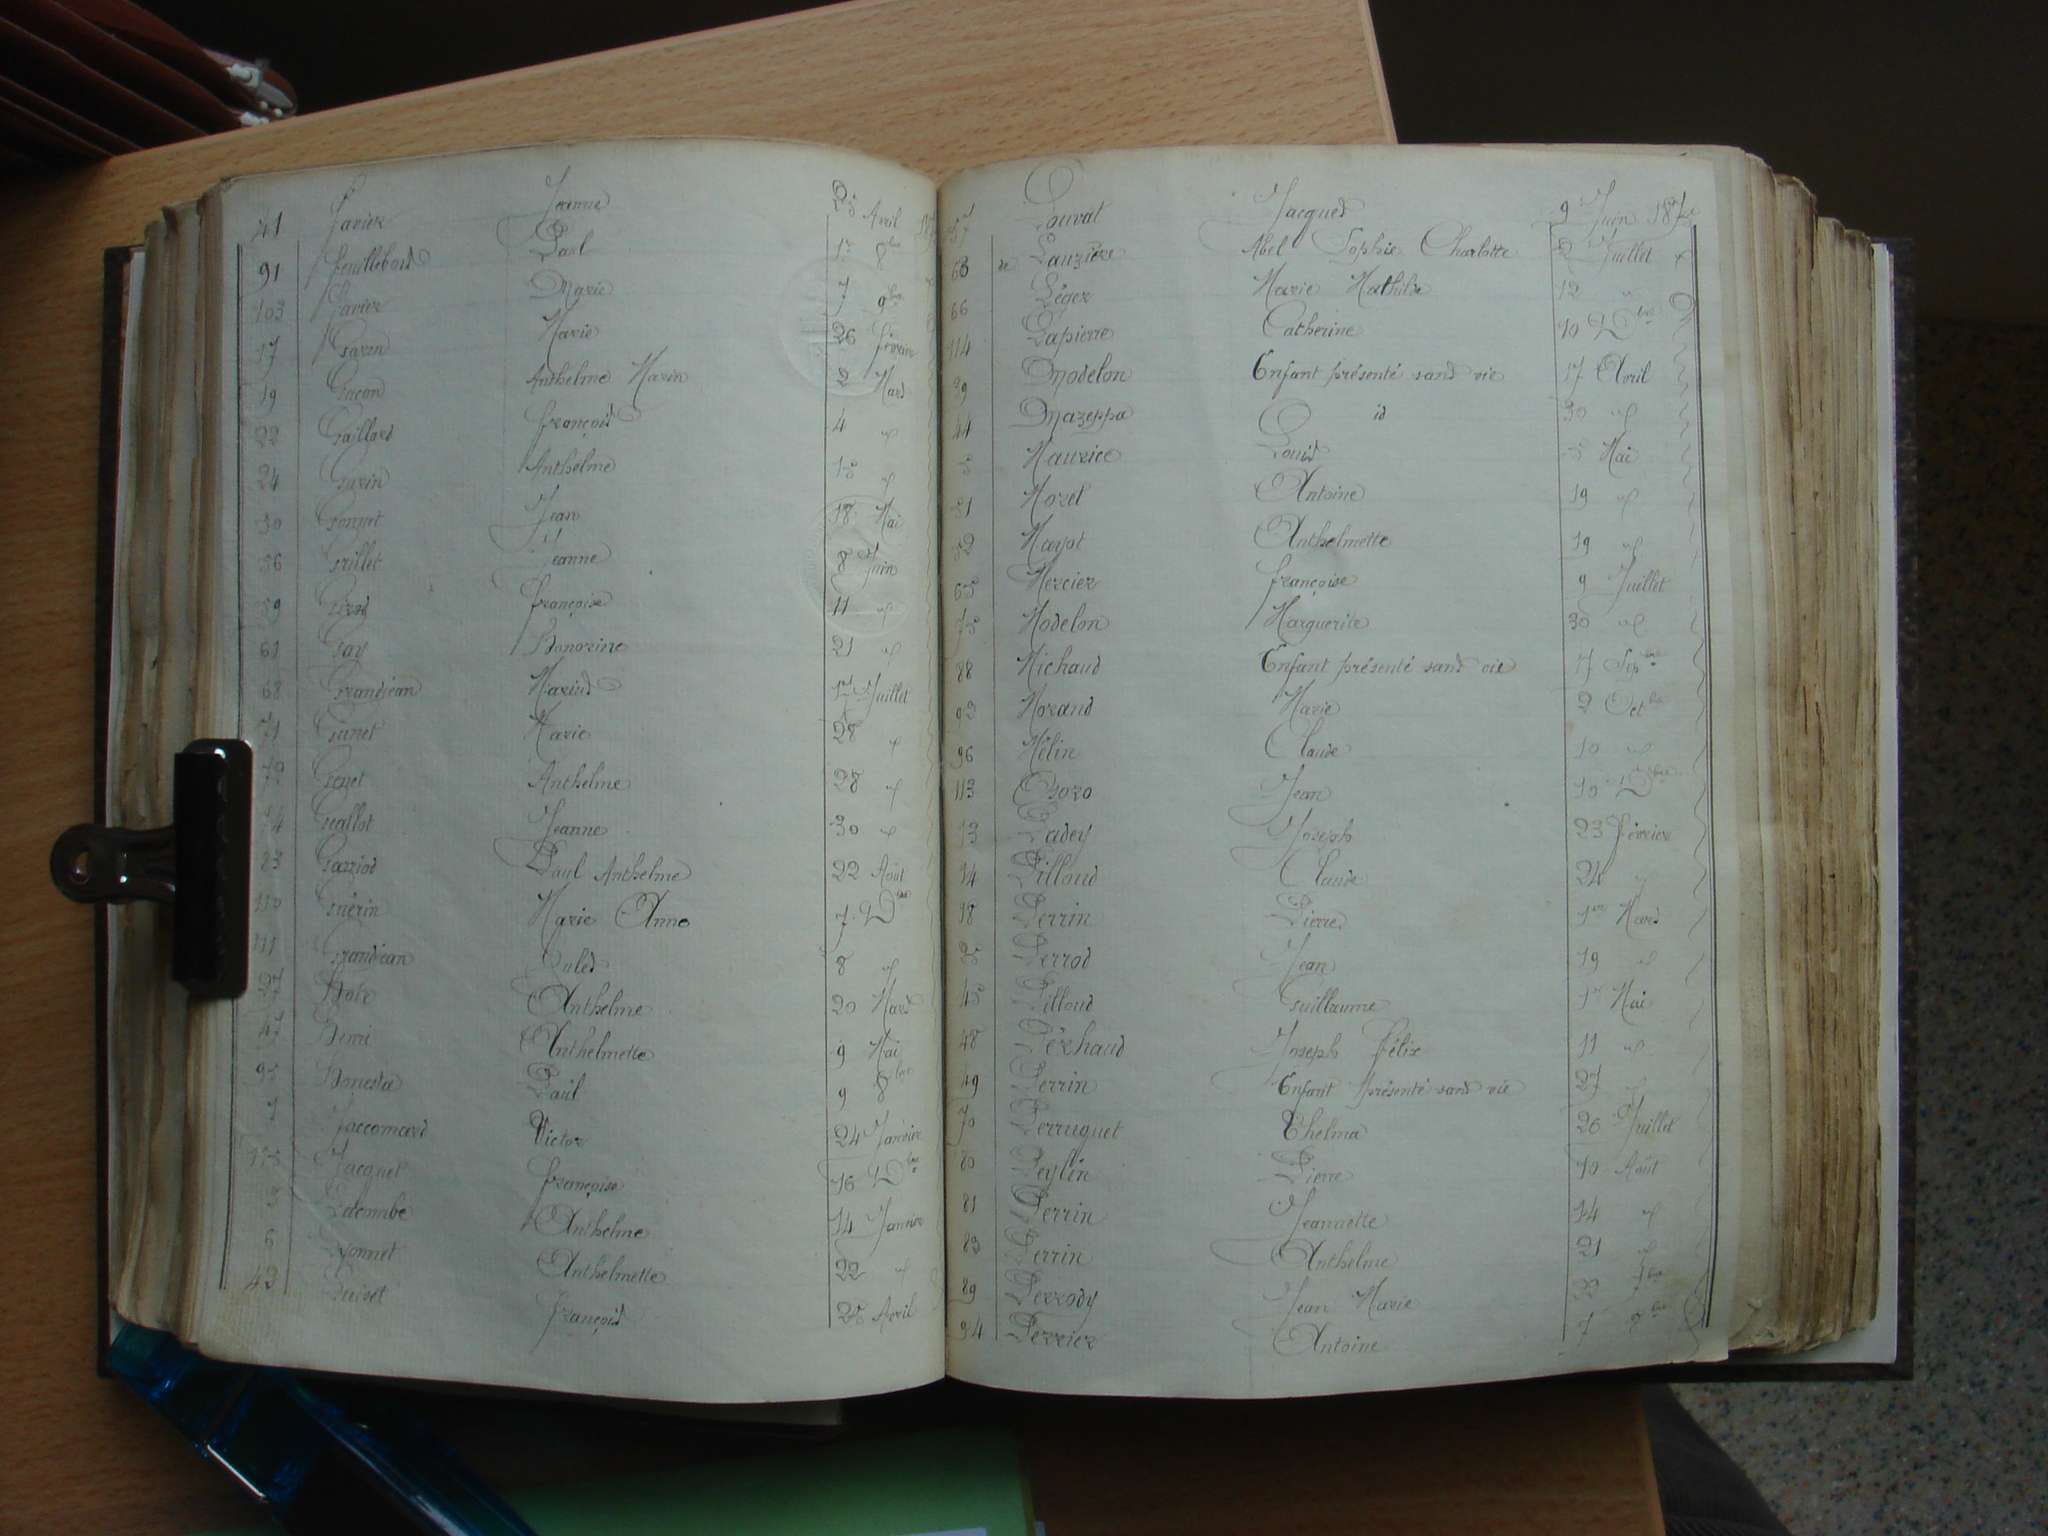 41 Favier Jeanne 25 Avril
91 feuillebois Paul 1er 8bre
103 Favier Marie 7 9bre
17 Garin Marie 26 février
19 Guron Anthelme Marin 2 Mars
22 Gaillard françois 4 id
24 Garin Anthelme 15 id
50 Gonnet Jean 18 Mai
56 Grillet Jeanne 8 Juin
59 Girod françoise 11 id
61 Gay Honorine 21 id
68 Grandjean Marius 17 Juillet
71 Marie 28 id
72 Genet Anthelme 28 id
74 Jeanne 30 id
83 Garriod Paul Anthelme 22 Août
110 Guérin Marie Anne 7 Dbre
111 Grandjean Jules 8 id
27 Anthelme 20 Mars
47 Anthelmette 9 Mai
95 Honesta Paul 9 8bre
7 Jaccomard Victor 24 Janvier
115 Jacquet françoise 16 Dbre
3 Lacombe Anthelme 14 Janvier
6 Lyonnet Anthelmette 22 id
43 françois 25 Avril
57 Louvat Jacques 9 Juin 1872
63 de Lauzière Abel Sophie Charlotte 2 Juillet
66 Léger Marie Mathilde 12 id
114 Lapierre Catherine 10 Dbre
39 Modelon Enfant présenté sans vie 17 Avril
44 Mazeppa id 30 id
Maurice Louis 5 Mai
51 Moret Antoine 19 id
52 Mayot Anthelmette 19 id
65 Mercier françoise 9 Juillet
75 Modelon Marguerite 30 id
88 Michaud Enfant présenté sans vie 17 Sepbre
92 Morand Marie 2 Octbre
96 Mélin Claude 10 id
113 Ozoro Jean 10 Dbre
13 Padey Joseph 23 février
14 Pilloud Claude 24 id
18 Perrin Pierre 1er Mars
25 Perrod Jean 19 id
45 Pilloud Guillaume 1er Mai
48 Pérhaud Joseph félix 11 id
49 Perrin Enfant présenté sans vie 27 id
70 Perruquet Thelma 26 Juillet
80 Peylin Pierre 10 Août
81 Perrin Jeannette 14 id
83 Perrin Anthelme 21 id
89 Perrody Jean Marie 7bre
94 Perrier Antoine 7 8bre